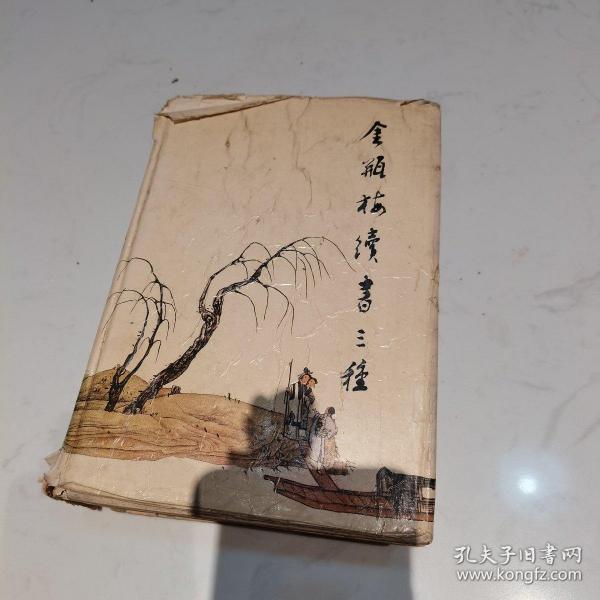 金瓶梅續書三種
孔夫子旧書网
www.kongfz.com